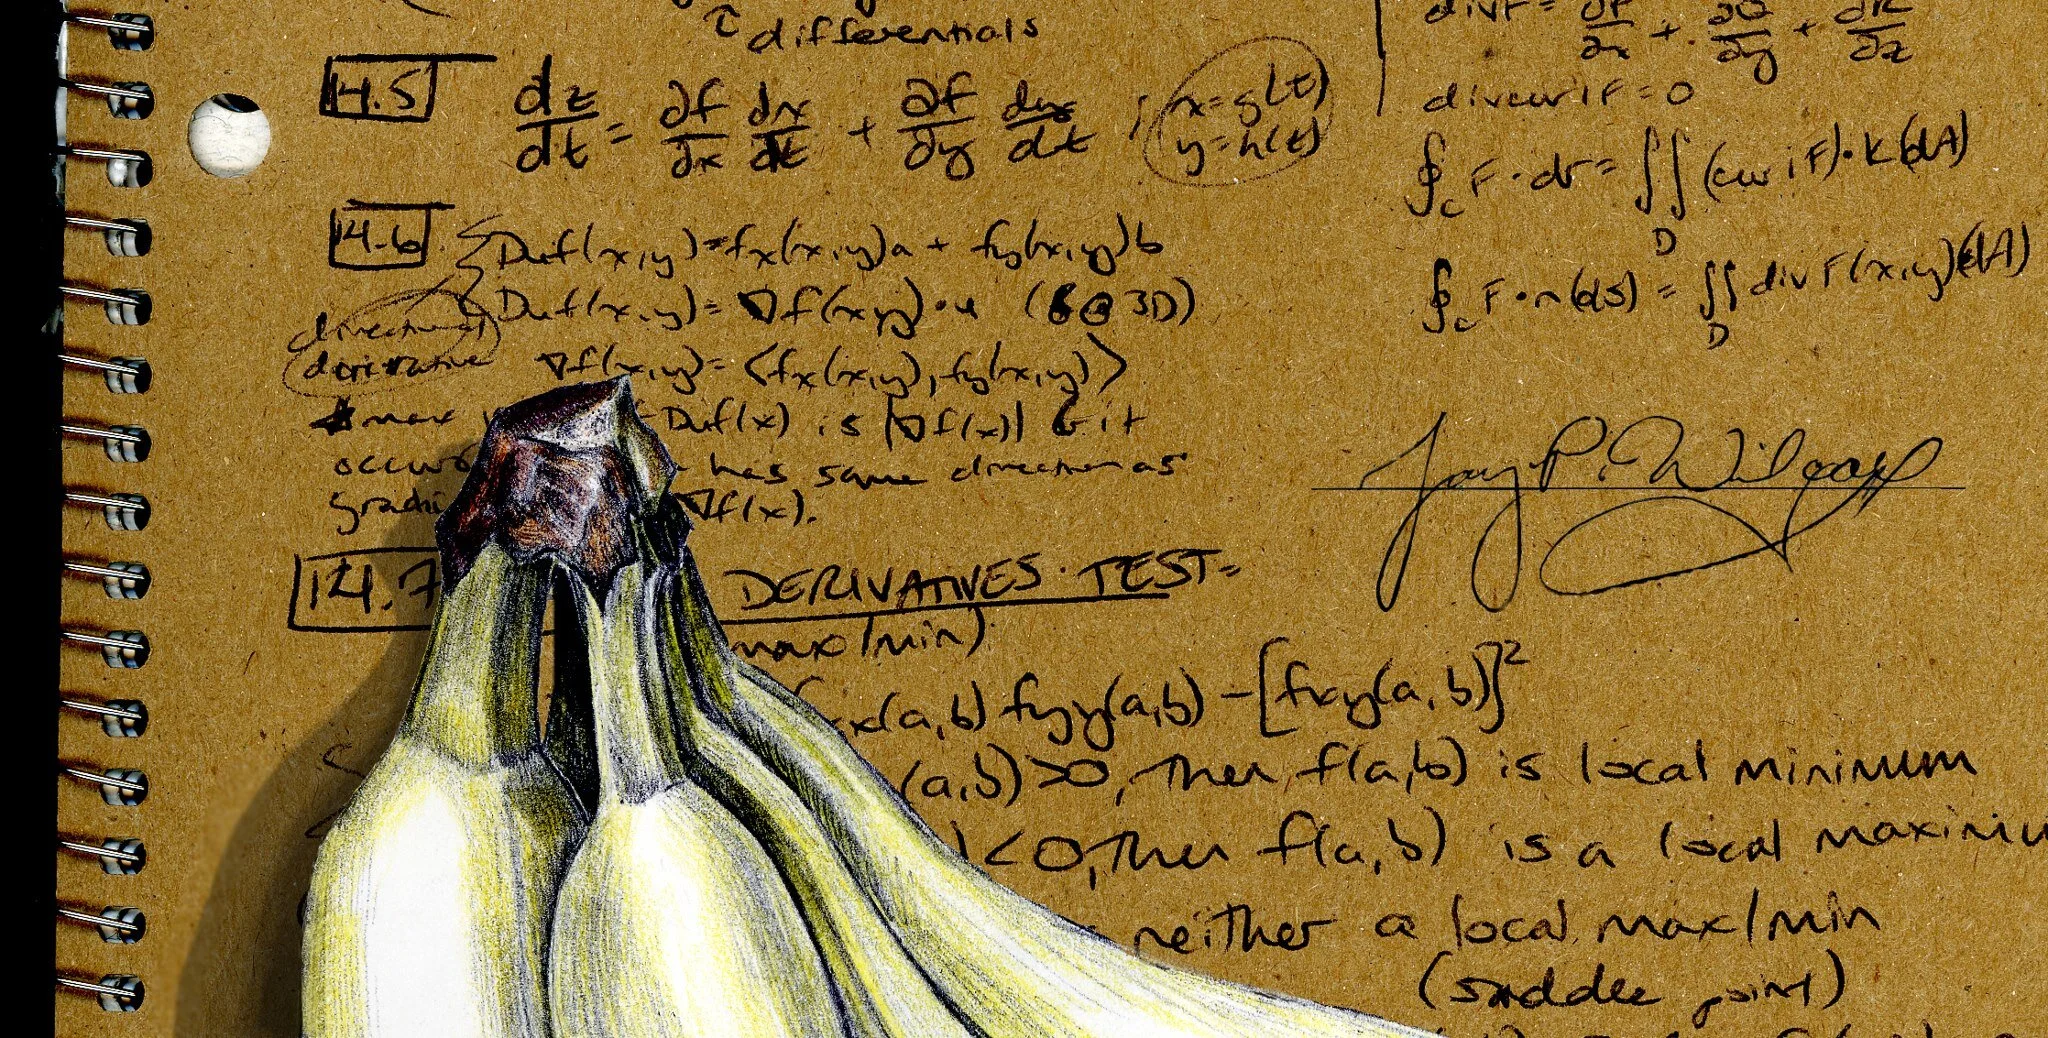 τ differentials
14.5 dz/dt = ∂f/∂x dx/dt + ∂f/∂y dy/dt ; x = g(t)
y = h(t)
14.6 Duf(x,y) = fx(x,y)a + fy(x,y)b
Duf(x,y) = ∇f(x,y)·u ( 3D)
directional
derivative ∇f(x,y) = ⟨fx(x,y), fy(x,y)⟩
max Duf(x) is |∇f(x)| & it
occurs has same direction as
∇f(x).
14.7 DERIVATIVES TEST=
max/min)
(a,b) fyy(a,b) - [fxy(a,b)]²
(a,b) >0, then f(a,b) is local minimum
) <0, then f(a,b) is a local maximu
neither a local max/min
(saddle point)
divF = ∂P/∂x + ∂Q/∂y + ∂R/∂z
div curl F = 0
∮c F·dr = ∬ (curl F)·k(dA)
D
∮c F·n(ds) = ∬ div F(x,y)(dA)
D
Jay P. Wilcox